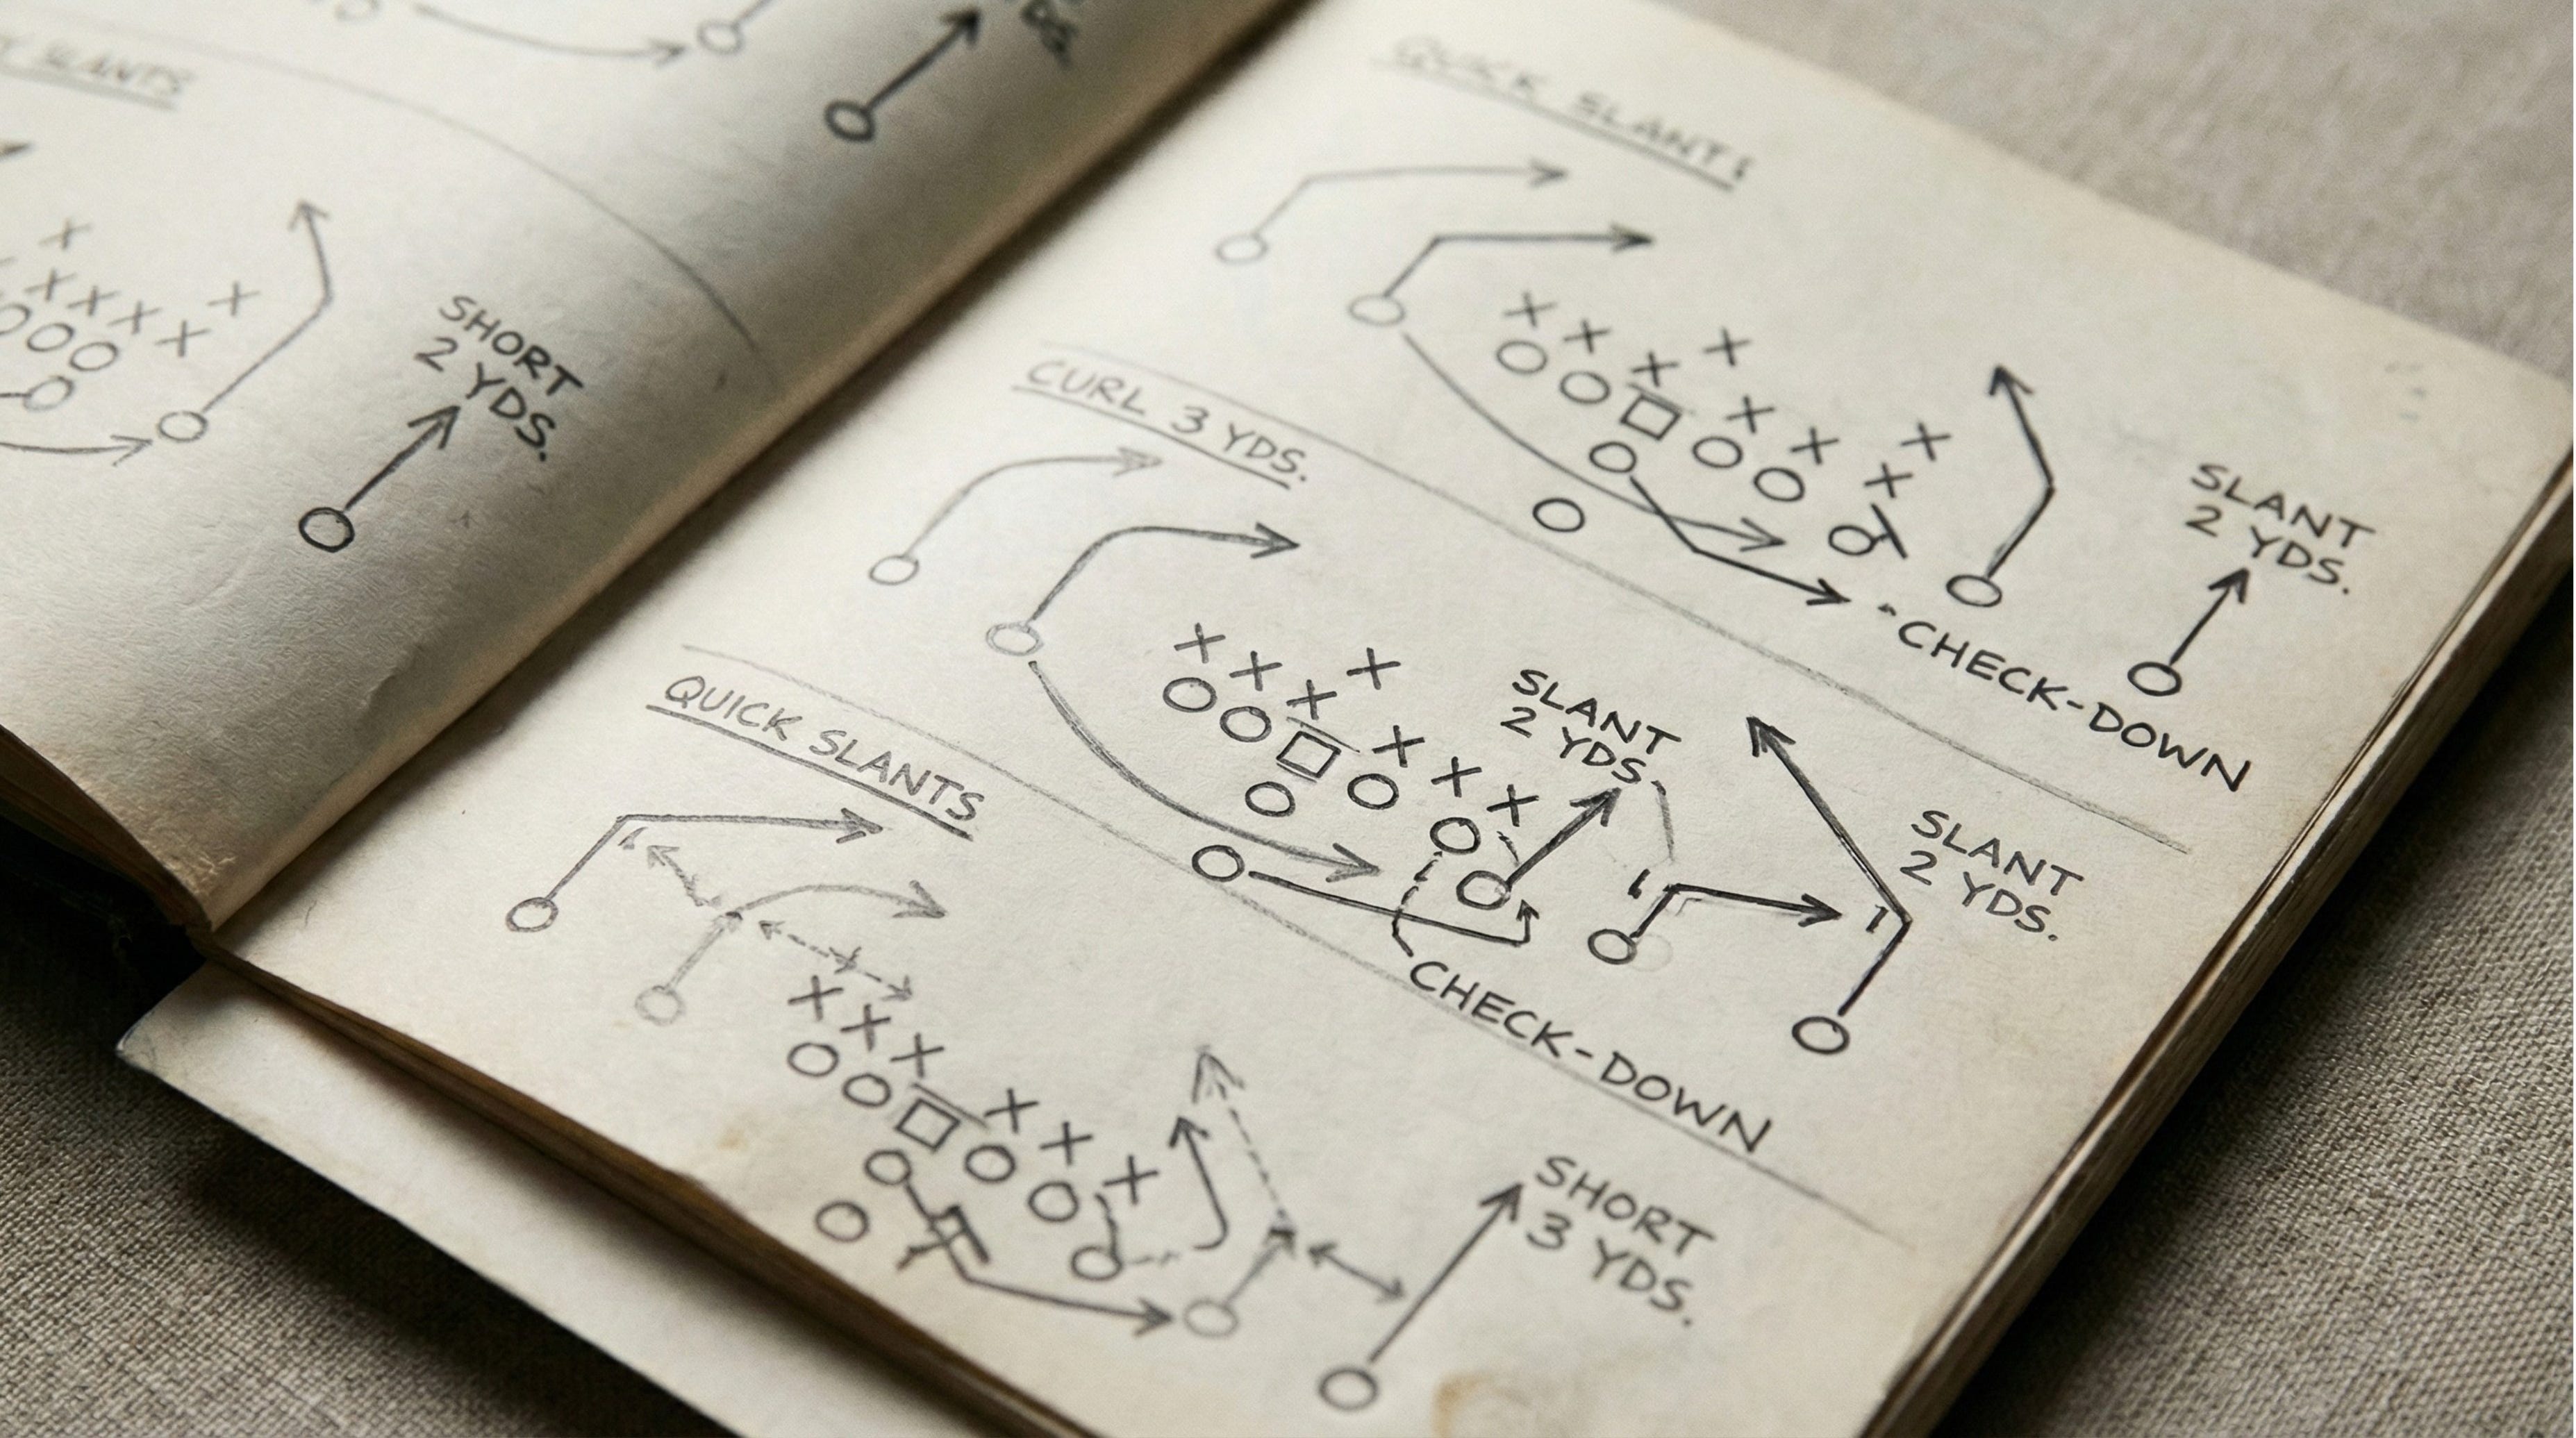 SLANTS
YDS.
SHORT
2 YDS.
QUICK SLANTS
SLANT
2 YDS.
"CHECK-DOWN
CURL 3 YDS.
SLANT
2 YDS.
SLANT
2 YDS.
CHECK-DOWN
QUICK SLANTS
SHORT
3 YDS.